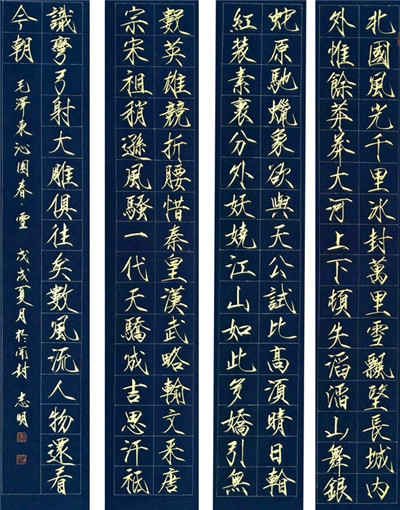 北國風光千里冰封萬里雪飄望長城內
外惟餘莽莽大河上下頓失滔滔山舞銀
蛇原馳蠟象欲與天公試比高須晴日看
紅裝素裹分外妖嬈江山如此多嬌引無
數英雄競折腰惜秦皇漢武略輸文采唐
宗宋祖稍遜風騷一代天驕成吉思汗祗
識彎弓射大雕俱往矣數風流人物還看
今朝 毛澤東沁園春·雪 戊戌夏月於開封 志明